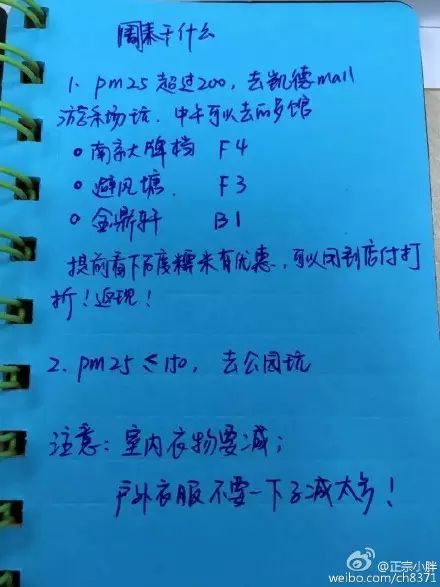 周末干什么
1. pm25 超过200, 去凯德mall
游乐场玩. 中午可以去的多馆
南京大牌档 F4
避风塘. F3
金鼎轩 B1
提前看下百度糯米有优惠, 可以用到店付打
折! 返现!
2. pm25 ≤ 150, 去公园玩
注意: 室内衣物要减;
户外衣服不要一下子减太多!
@正宗小胖
weibo.com/ch8371